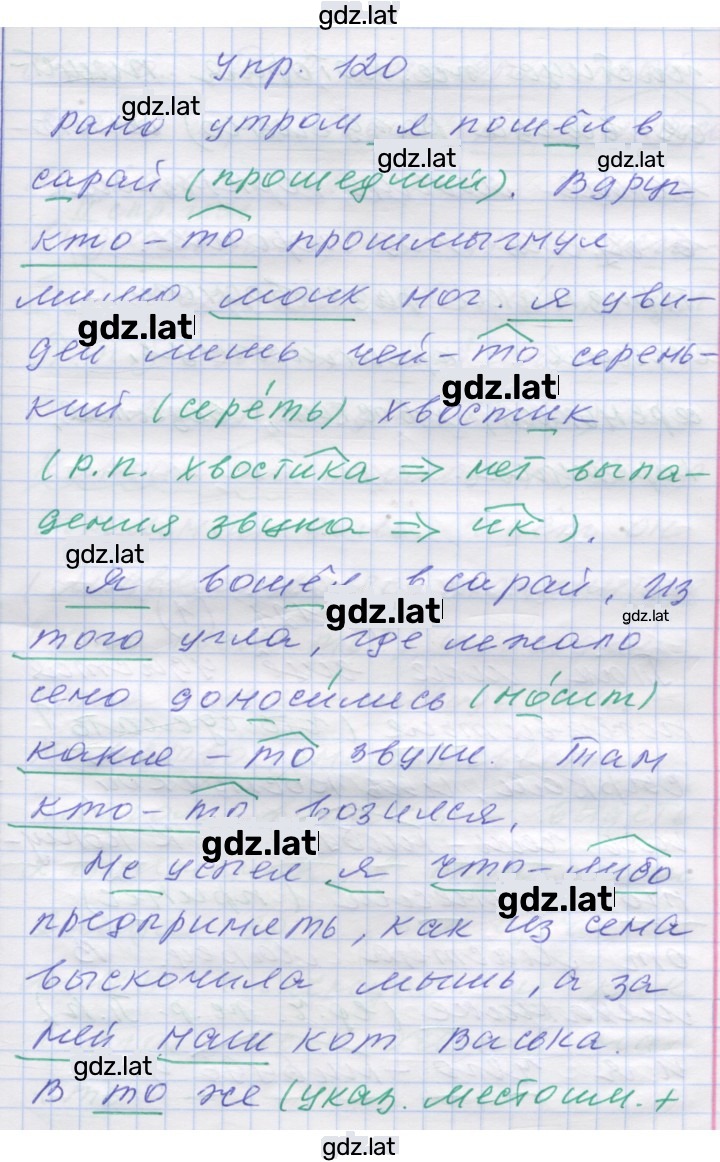 gdz.lat
Упр. 120
gdz.lat
рано утром я пошёл в
gdz.lat
gdz.lat
сарай (прошедший). Вдруг
кто-то прошмыгнул
мимо моих ног. я уви-
gdz.lat
дел лишь чей-то серень-
gdz.lat
кий (сере́ть) хвостик
(р.п. хвостика => нет выпа-
дения звука => ик).
gdz.lat
Я вошёл в сарай. Из
gdz.lat
gdz.lat
того угла, где лежало
сено доноси́лись (но́сит)
какие-то звуки. Там
кто-то возился.
gdz.lat
Не успел я что-либо
gdz.lat
предпринять, как из сена
выскочила мышь, а за
ней наш кот Васька.
gdz.lat
В то же (указ. местоим. +
gdz.lat